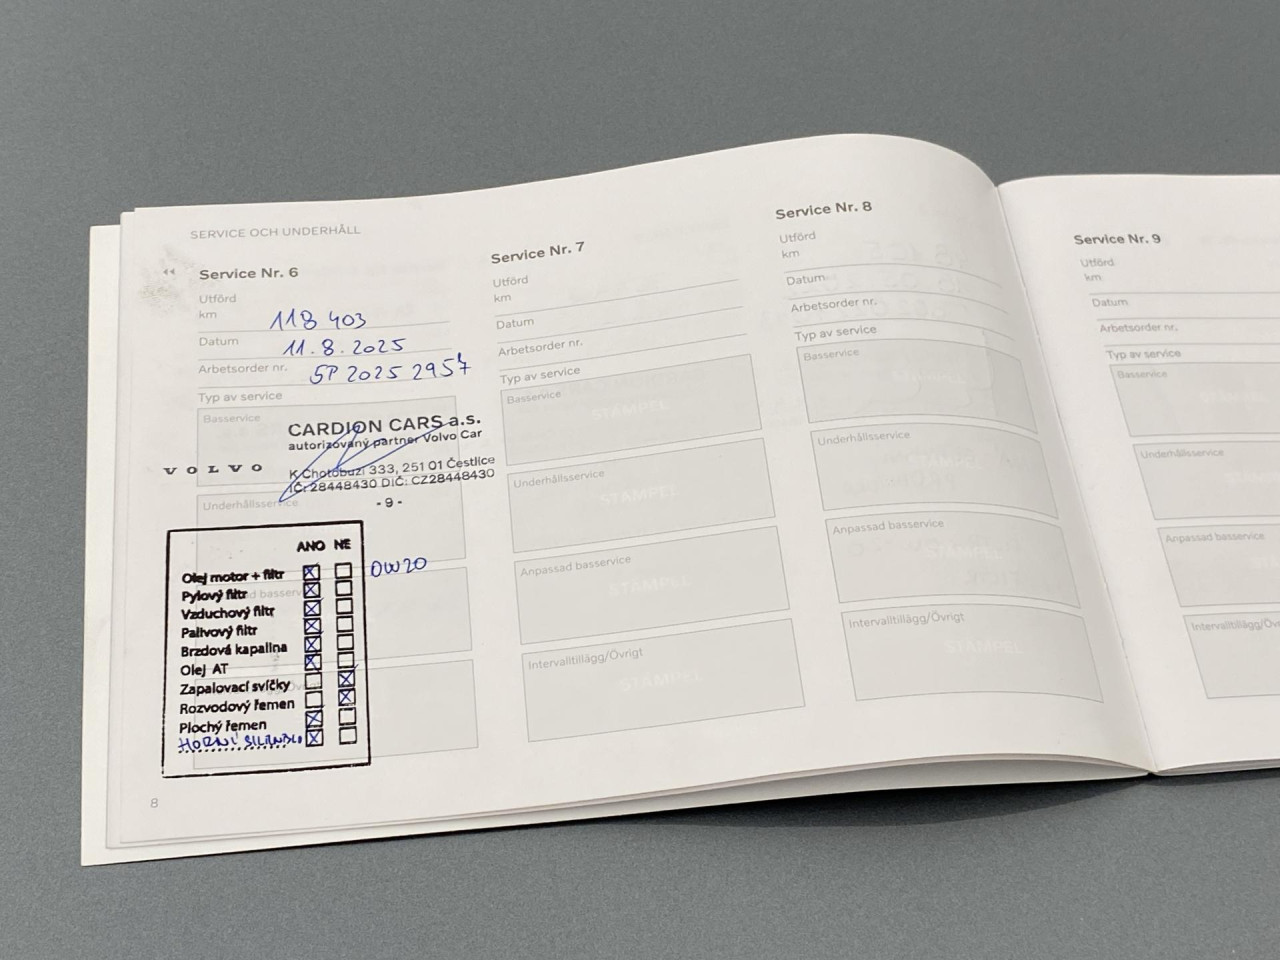 SERVICE OCH UNDERHÅLL
Service Nr. 6
Utförd
km 118 403
Datum 11.8.2025
Arbetsorder nr. SP 2025 2957
Typ av service
Basservice
CARDION CARS a.s.
autorizovaný partner Volvo Car
VOLVO
K Chotobuzi 333, 251 01 Čestlice
IČ: 28448430 DIČ: CZ28448430
- 9 -
Underhållsservice
ANO NE
Olej motor + filtr 0W20
Pylový filtr
Vzduchový filtr
Palivový filtr
Brzdová kapalina
Olej AT
Zapalovací svíčky
Rozvodový řemen
Plochý řemen
HORNÍ SILENBLO
8
Service Nr. 7
Utförd
km
Datum
Arbetsorder nr.
Typ av service
Basservice
STÄMPEL
Underhållsservice
STÄMPEL
Anpassad basservice
STÄMPEL
Intervalltillägg/Övrigt
STÄMPEL
Service Nr. 8
Utförd
km
Datum
Arbetsorder nr.
Typ av service
Basservice
Underhållsservice
STÄMPEL
Anpassad basservice
STÄMPEL
Intervalltillägg/Övrigt
STÄMPEL
Service Nr. 9
Utförd
km
Datum
Arbetsorder nr.
Typ av service
Basservice
STÄMPEL
Underhållsservice
Anpassad basservice
Intervalltillägg/Öv